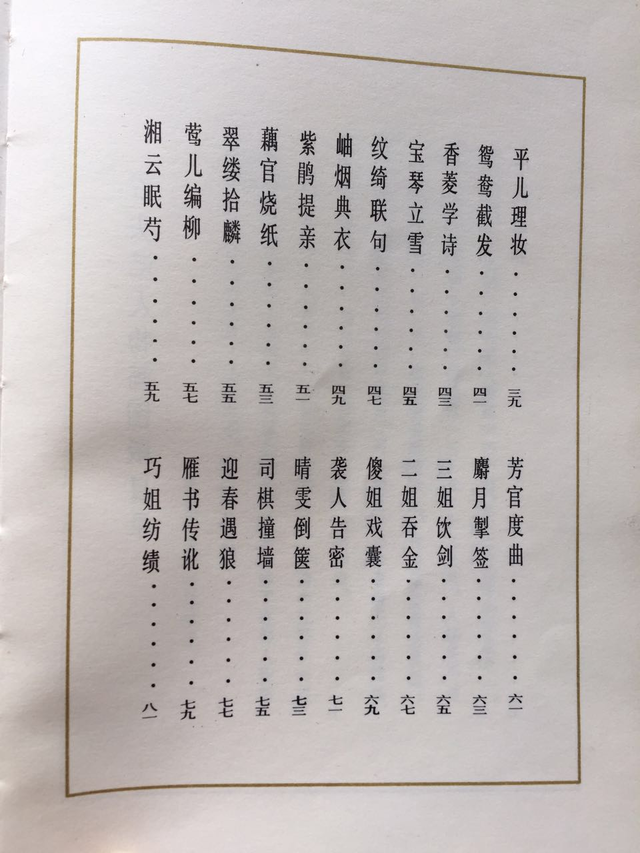 平儿理妆······三九
鸳鸯截发······四一
香菱学诗······四三
宝琴立雪······四五
纹绮联句······四七
岫烟典衣······四九
紫鹃提亲······五一
藕官烧纸······五三
翠缕拾麟······五五
莺儿编柳······五七
湘云眠芍······五九
芳官度曲······六一
麝月掣签······六三
三姐饮剑······六五
二姐吞金······六七
傻姐戏囊······六九
袭人告密······七一
晴雯倒箧······七三
司棋撞墙······七五
迎春遇狼······七七
雁书传讹······七九
巧姐纺绩······八一